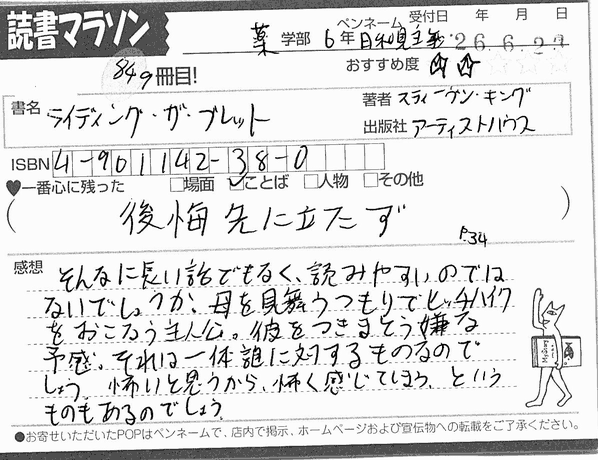 読書マラソン
849冊目!
薬 学部 6年 ペンネーム 日和見主義 受付日 年 月 日
26.6.23
おすすめ度 ☆☆
書名 ライディング・ザ・ブレット
著者 スティーヴン・キング
出版社 アーティストハウス
ISBN 4-901142-38-0
♥一番心に残った □場面 ☑ことば □人物 □その他
(後悔先に立たず)
P.34
感想
そんなに長い話でもなく、読みやすいのでは
ないでしょうか、母を見舞うつもりでヒッチハイク
をおこなう主人公。彼をつきまとう嫌な
予感。それは一体誰に対するものなので
しょう。怖いと思うから、怖く感じてしまう、という
ものもあるのでしょう。
●お寄せいただいたPOPはペンネームで、店内で掲示、ホームページおよび宣伝物への転載をご了承ください。